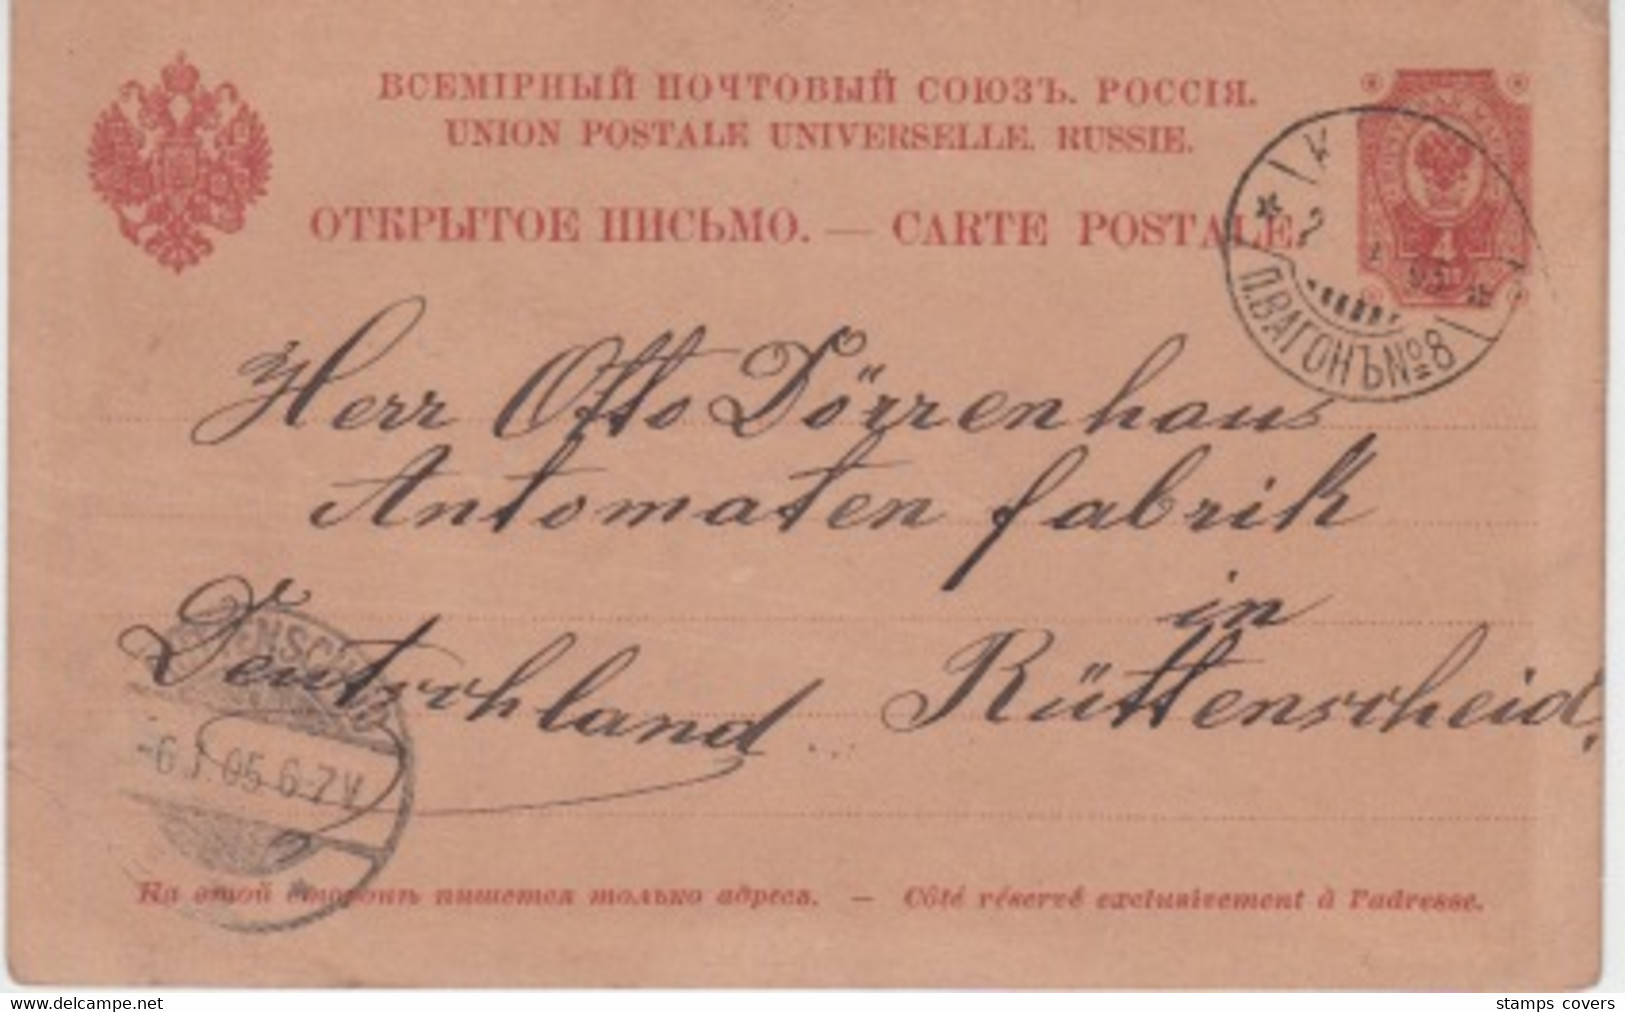 ВСЕМІРНЫЙ ПОЧТОВЫЙ СОЮЗЪ. РОССІЯ.
UNION POSTALE UNIVERSELLE. RUSSIE.
ОТКРЫТОЕ ПИСЬМО. — CARTE POSTALE.
4
П.ВАГОНЪ №8
Herr Otto Dörrenhaus
Automaten fabrik
in
Deutschland Rüttenscheid.
-6.1.05.6-7V
На этой сторонѣ пишется только адресъ. — Côté réservé exclusivement à l'adresse.
www.delcampe.net
stamps covers